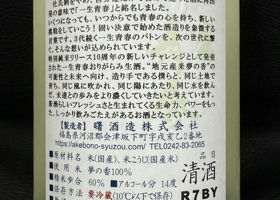 社氏朝をやめ、
発の意味で「一生青春」と銘名しました。
いくつになっても、いつからでも青春の心を持ち、新しい
挑戦をしていこう！固い決意で始めた酒造りを象徴する
言葉です。3代続く一生青春のバトンと、次の世代に繋
いでいきます。
特別純米リリース10周年の新しいチャレンジとして発売
された一生青春おりがらみ生酒。"地元産米夢の香"の
可能性と未来へ向け、造り手である僕らと、同じ土地で
育ち、同じ風に吹かれ、同じ陽にあたり、同じ水を飲ん
で、友達との歩みをより濃くしていきたいと考えています。
新感なしいフレッシュさと生きてくる生命力、パワーをもっ
しっかりと感じて頂けるお酒となっております。
【製造者】曙酒造株式会社
福島県河沼郡会津坂下町字戌亥乙2番地
https://akebono-syuzou.com/ TEL0242-83-2065
■原材料名 米(国産)、米こうじ(国産米)
■使用米 夢の香100%
■精米歩合 60% ■アルコール分 14度
■保存方法 要冷蔵(10℃以下で保存)
7.2
清酒
R7BY